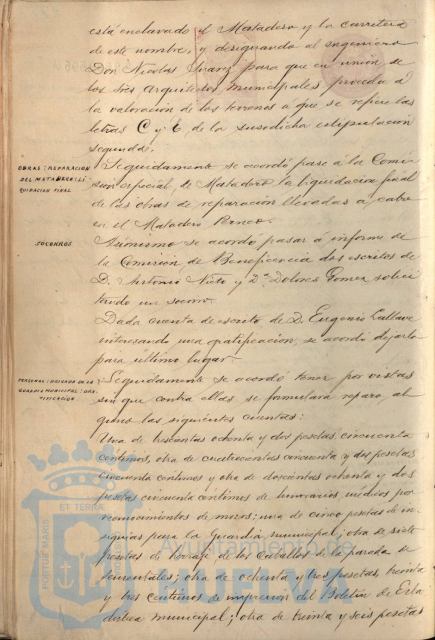 está enclavado el Matadero y la carretera
de este nombre, y designando al ingeniero
Don Nicolas Suarez para que en unión de
los Sres Arquitectos municipales proceda á
la valoración de los terrenos a que se refieren las
letras C y E, de la susodicha estipulación
segunda.
OBRAS: REPARACIÓN
DEL MATADERO: LI-
QUIDACIÓN FINAL
Seguidamente se acordó pase á la Comi
sión especial, de Matadero la liquidación final
de las obras de reparación llevadas á cabo
en el Matadero Público.
SOCORROS
Asimismo se acordó pasar á informe de
la Comisión de Beneficencia dos escritos de
D. Antonio Nieto y Dª Dolores Gomez solici
tando un socorro.
Dada cuenta de escrito de D. Eugenio
interesando una gratificación, se acordó dejarlo
para último lugar.
PERSONAL: BRIGADA DE LA
GUARDIA MUNICIPAL: GRA-
TIFICACIÓN
Seguidamente se acordó tener por vistas
sin que contra ellas se formulara reparo al
guno las siguientes cuentas:
Una de trescientas ochenta y dos pesetas cincuenta
centimos, otra de cuatrocientas cincuenta y dos pesetas
cincuenta centimos y otra de doscientas ochenta y dos
pesetas cincuenta centimos de honorarios medicos por
reconocimientos de mozos; una de cinco pesetas de in
signias para la Guardia municipal; otra de siete
pesetas de forraje de los caballos de la parada de
sementales; otra de ochenta y tres pesetas, treinta
y tres centimos de impresión del Boletín de Esta
distica municipal; otra de treinta y seis pesetas
ET TERRA
FORTIS MARIS
Ayuntamiento de